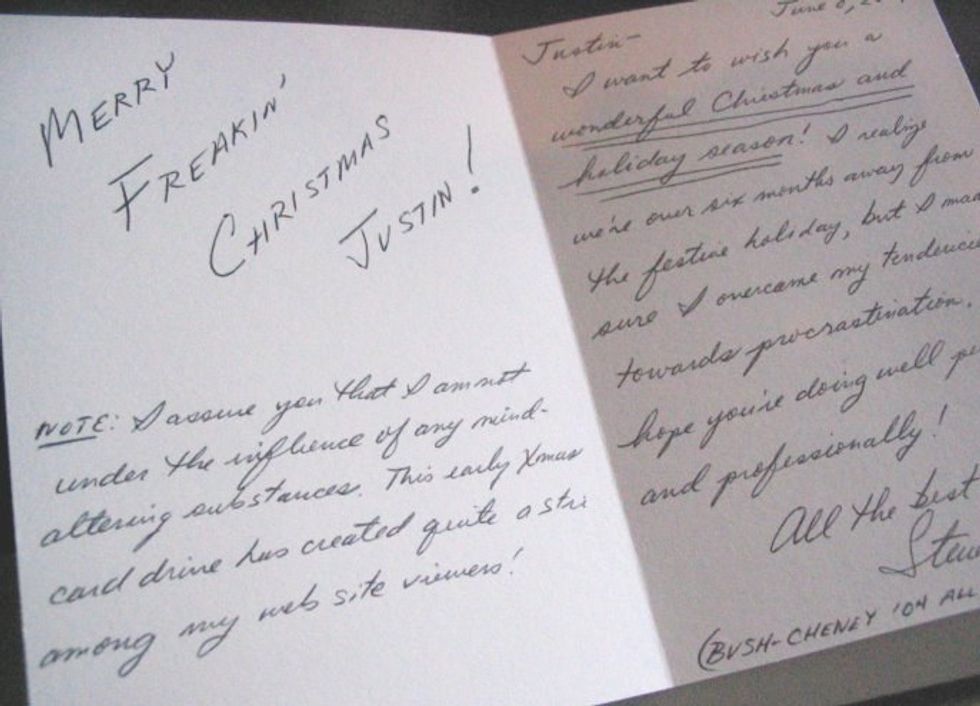 MERRY
FREAKIN'
CHRISTMAS
JUSTIN!
NOTE: I assure you that I am not
under the influence of any mind-
altering substances. This early Xmas
card drive has created quite a stir
among my web site viewers!
June
Justin-
I want to wish you a
wonderful Christmas and
holiday season! I realize
we're over six months away from
the festive holiday, but I made
sure I overcame my tendencies
towards procrastination.
hope you're doing well
and professionally!
All the best
(BUSH-CHENEY '04 ALL